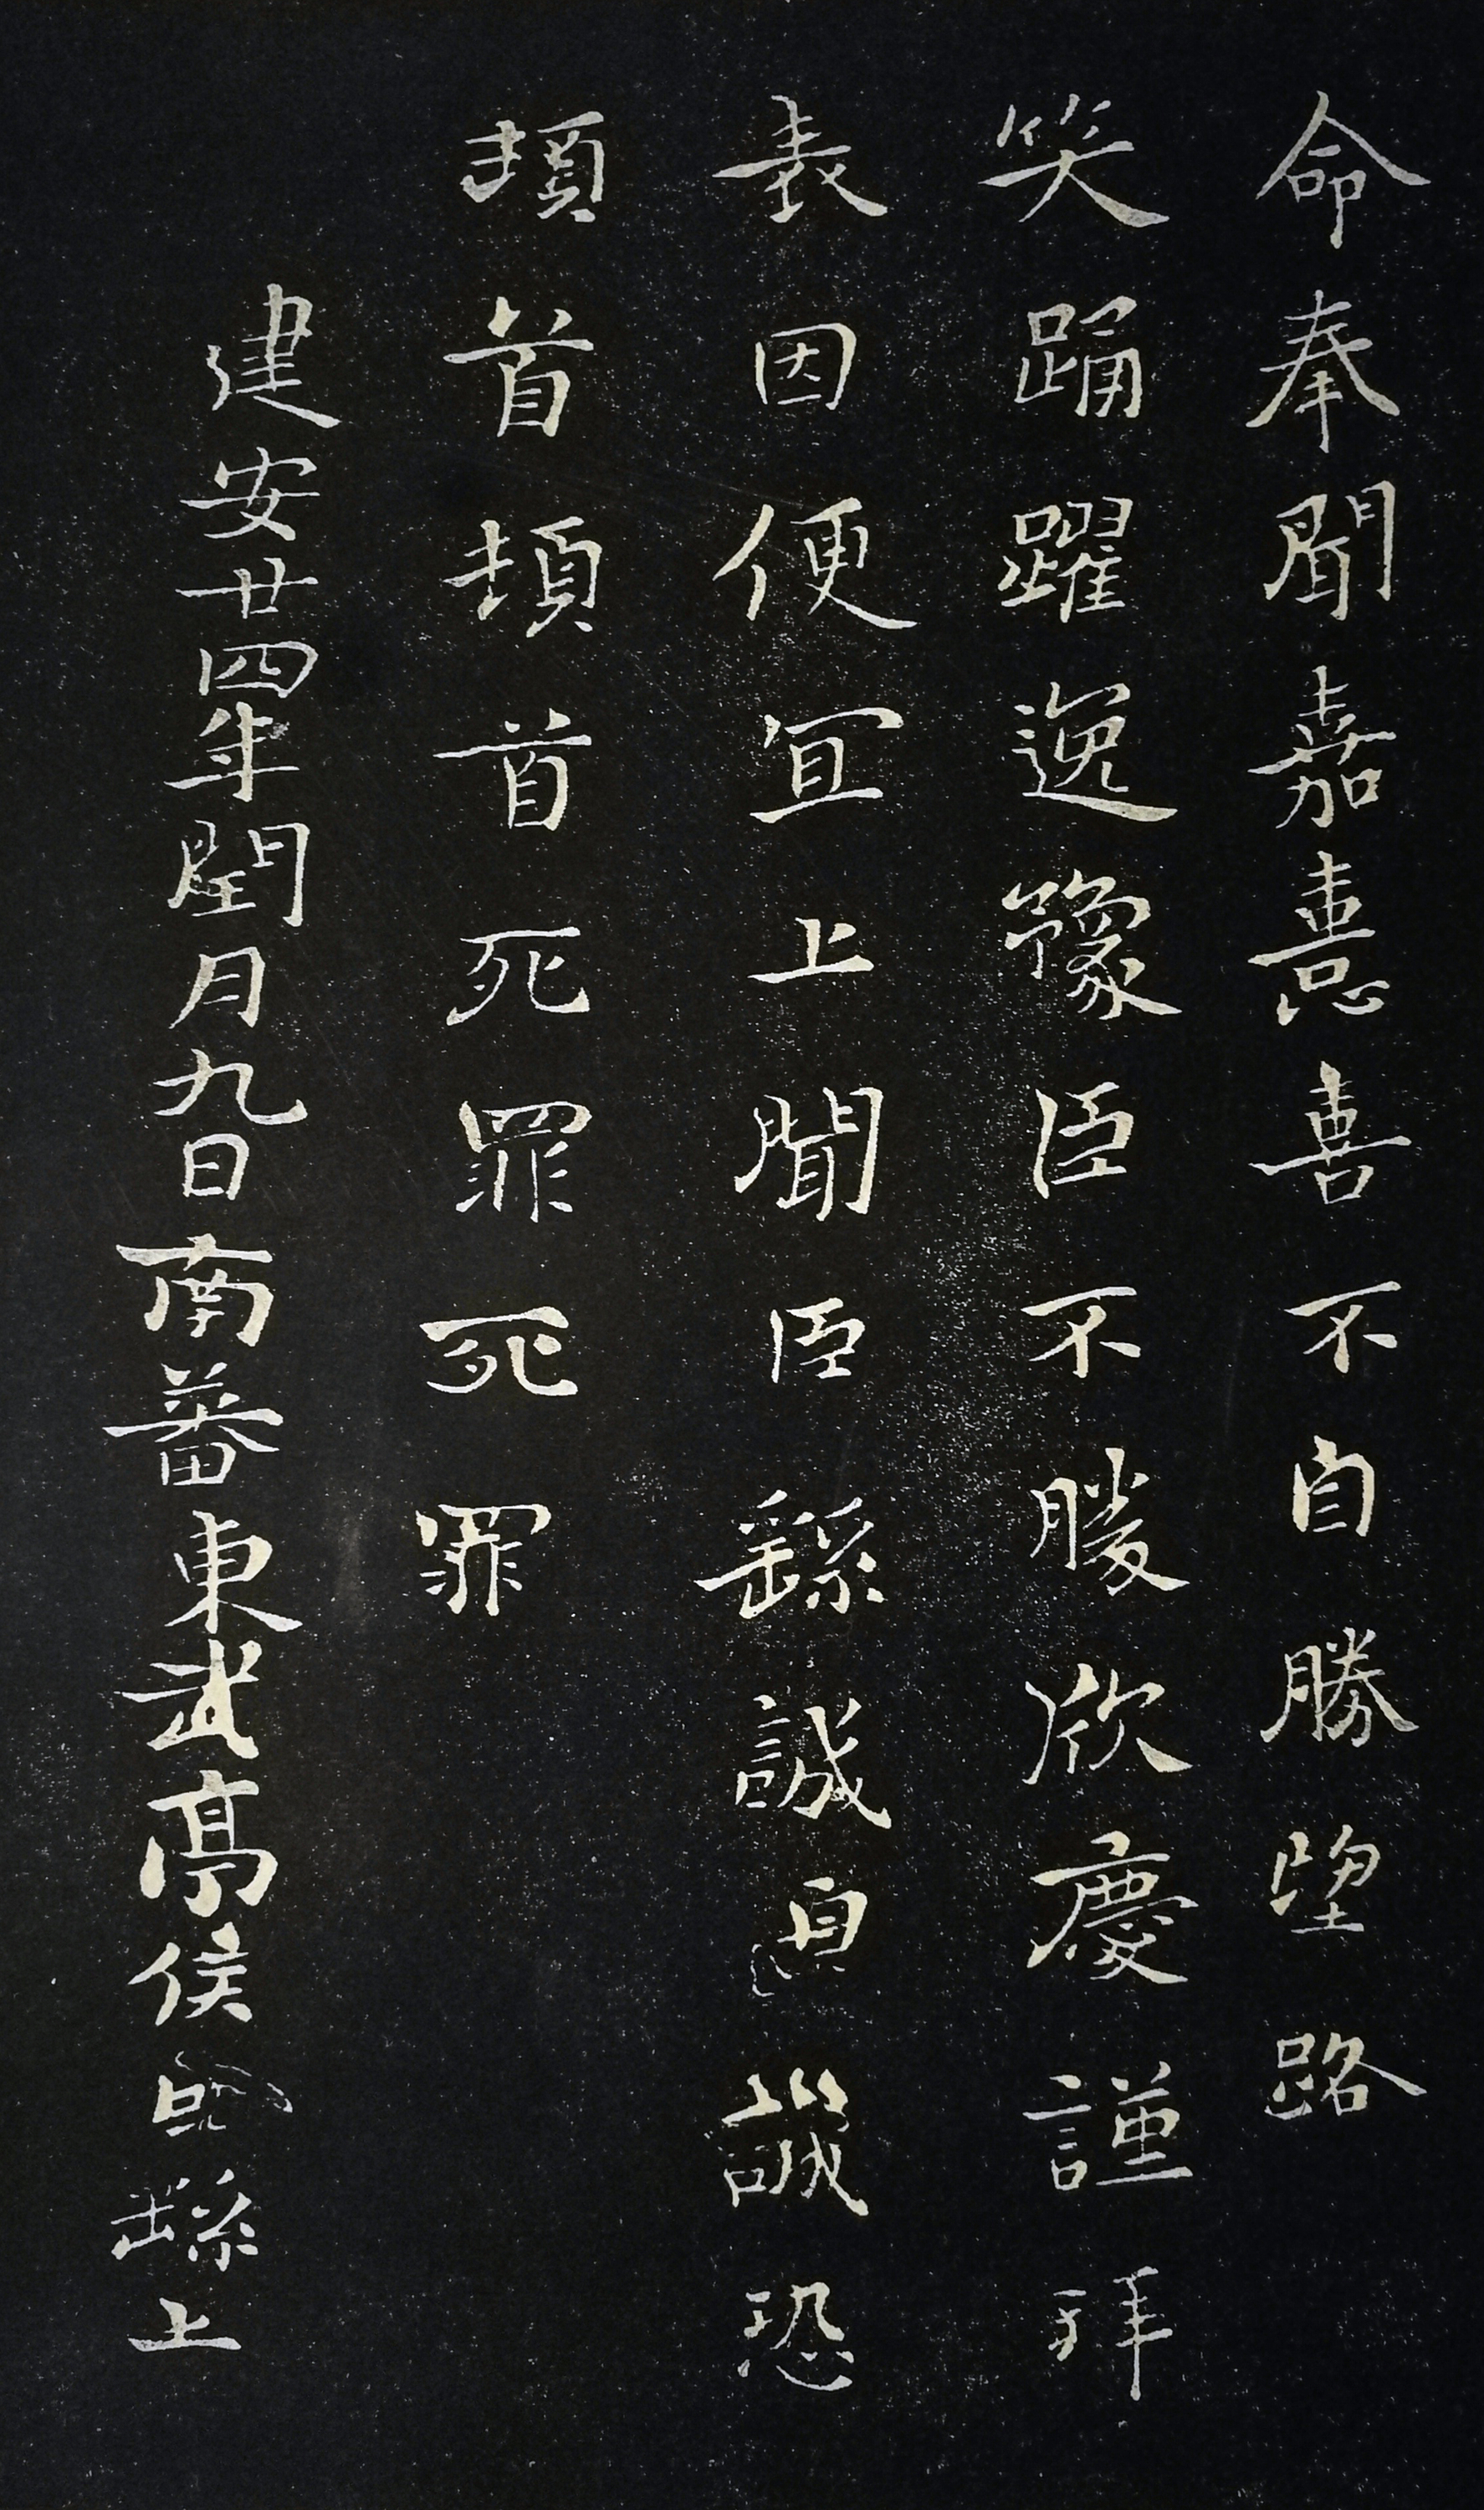 命奉聞嘉憙喜不自勝望路
笑踊躍逸豫臣不勝欣慶謹拜
表因便宜上聞臣繇誠誠恐
頓首頓首死罪死罪
建安廿四年閏月九日南蕃東武亭侯繇上